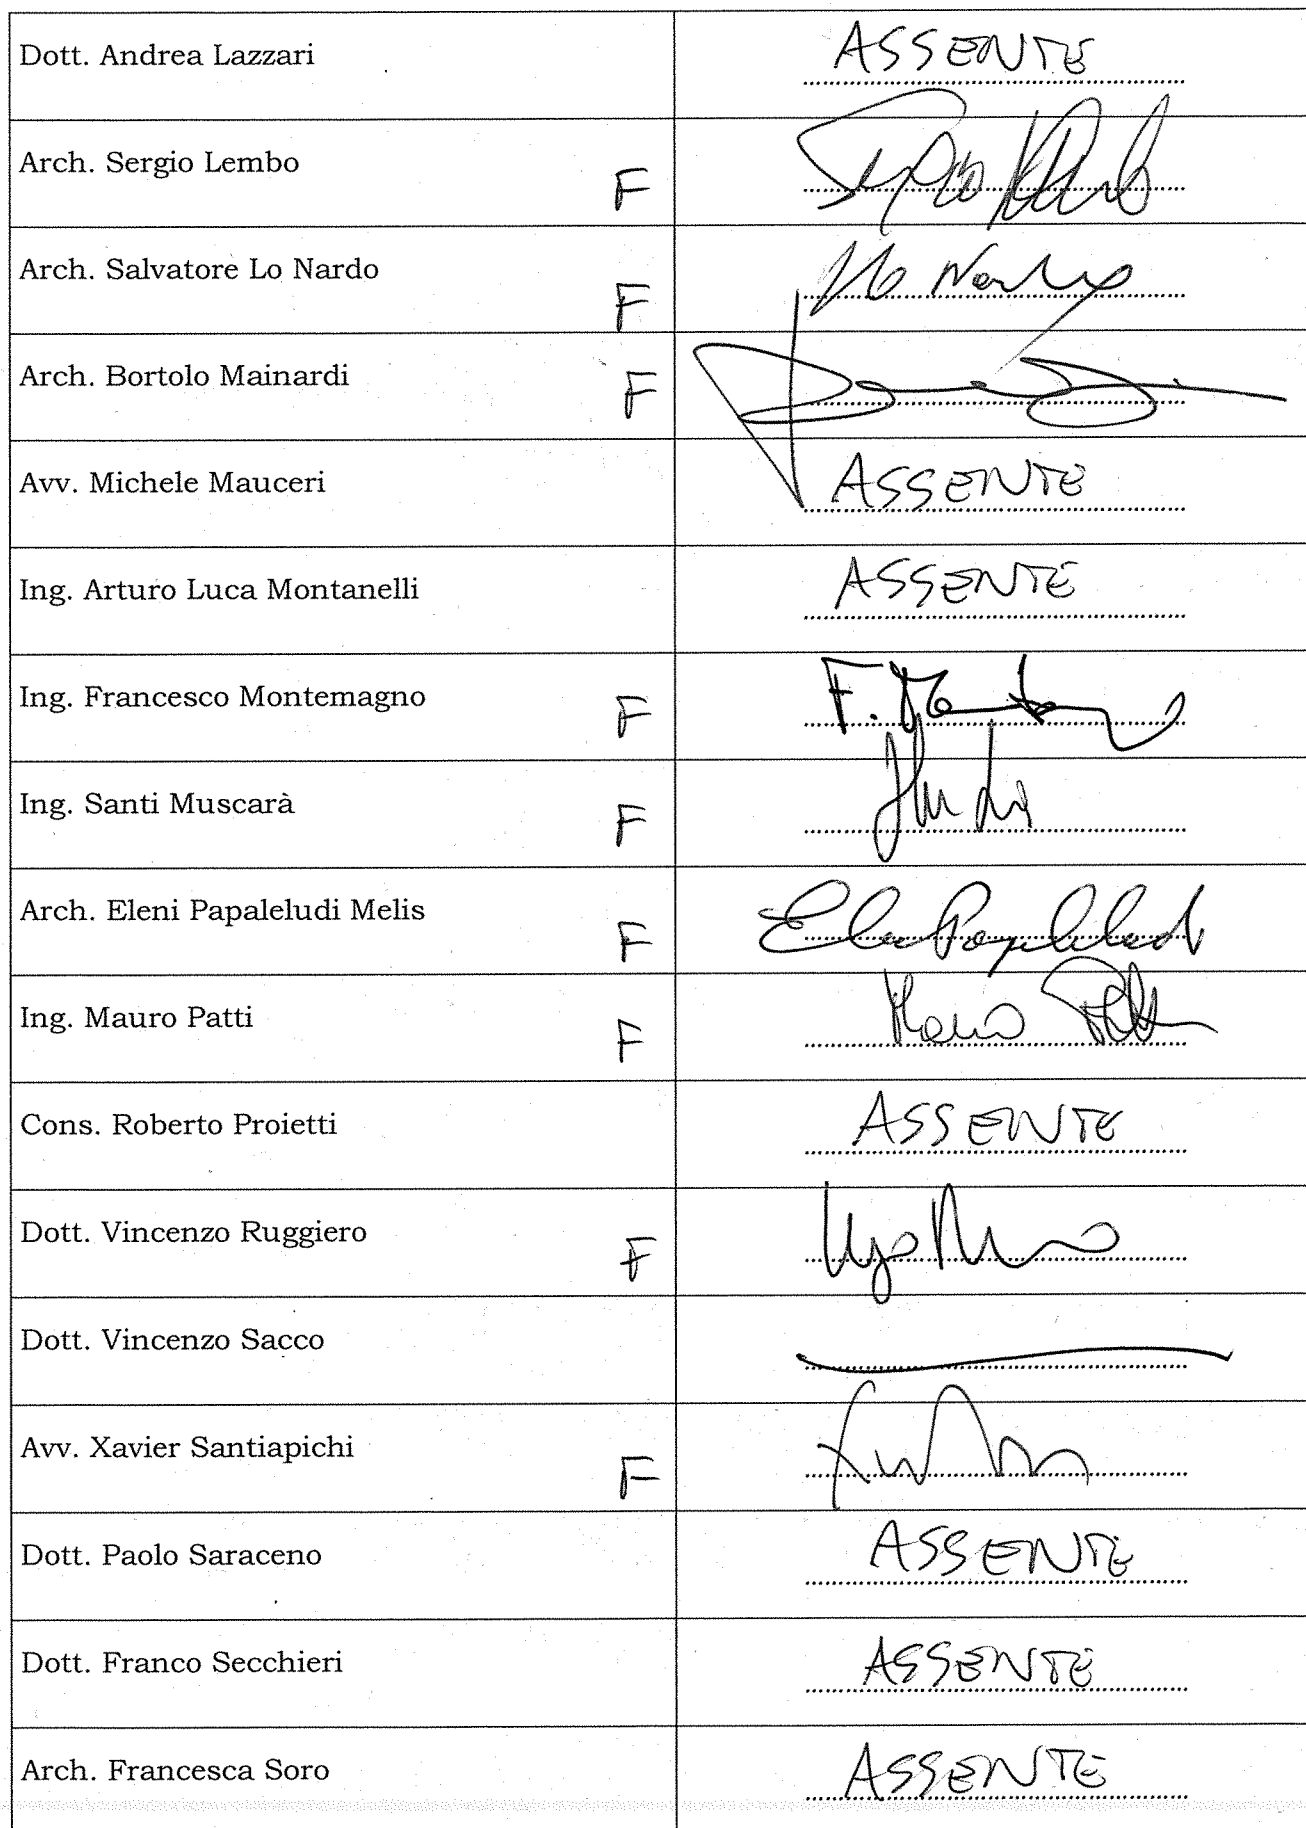 Dott. Andrea Lazzari ASSENTE
Arch. Sergio Lembo F
Arch. Salvatore Lo Nardo F Lo Nardo
Arch. Bortolo Mainardi F
Avv. Michele Mauceri ASSENTE
Ing. Arturo Luca Montanelli ASSENTE
Ing. Francesco Montemagno F F.
Ing. Santi Muscarà F
Arch. Eleni Papaleludi Melis F
Ing. Mauro Patti F Mauro Patti
Cons. Roberto Proietti ASSENTE
Dott. Vincenzo Ruggiero F
Dott. Vincenzo Sacco
Avv. Xavier Santiapichi F
Dott. Paolo Saraceno ASSENTE
Dott. Franco Secchieri ASSENTE
Arch. Francesca Soro ASSENTE